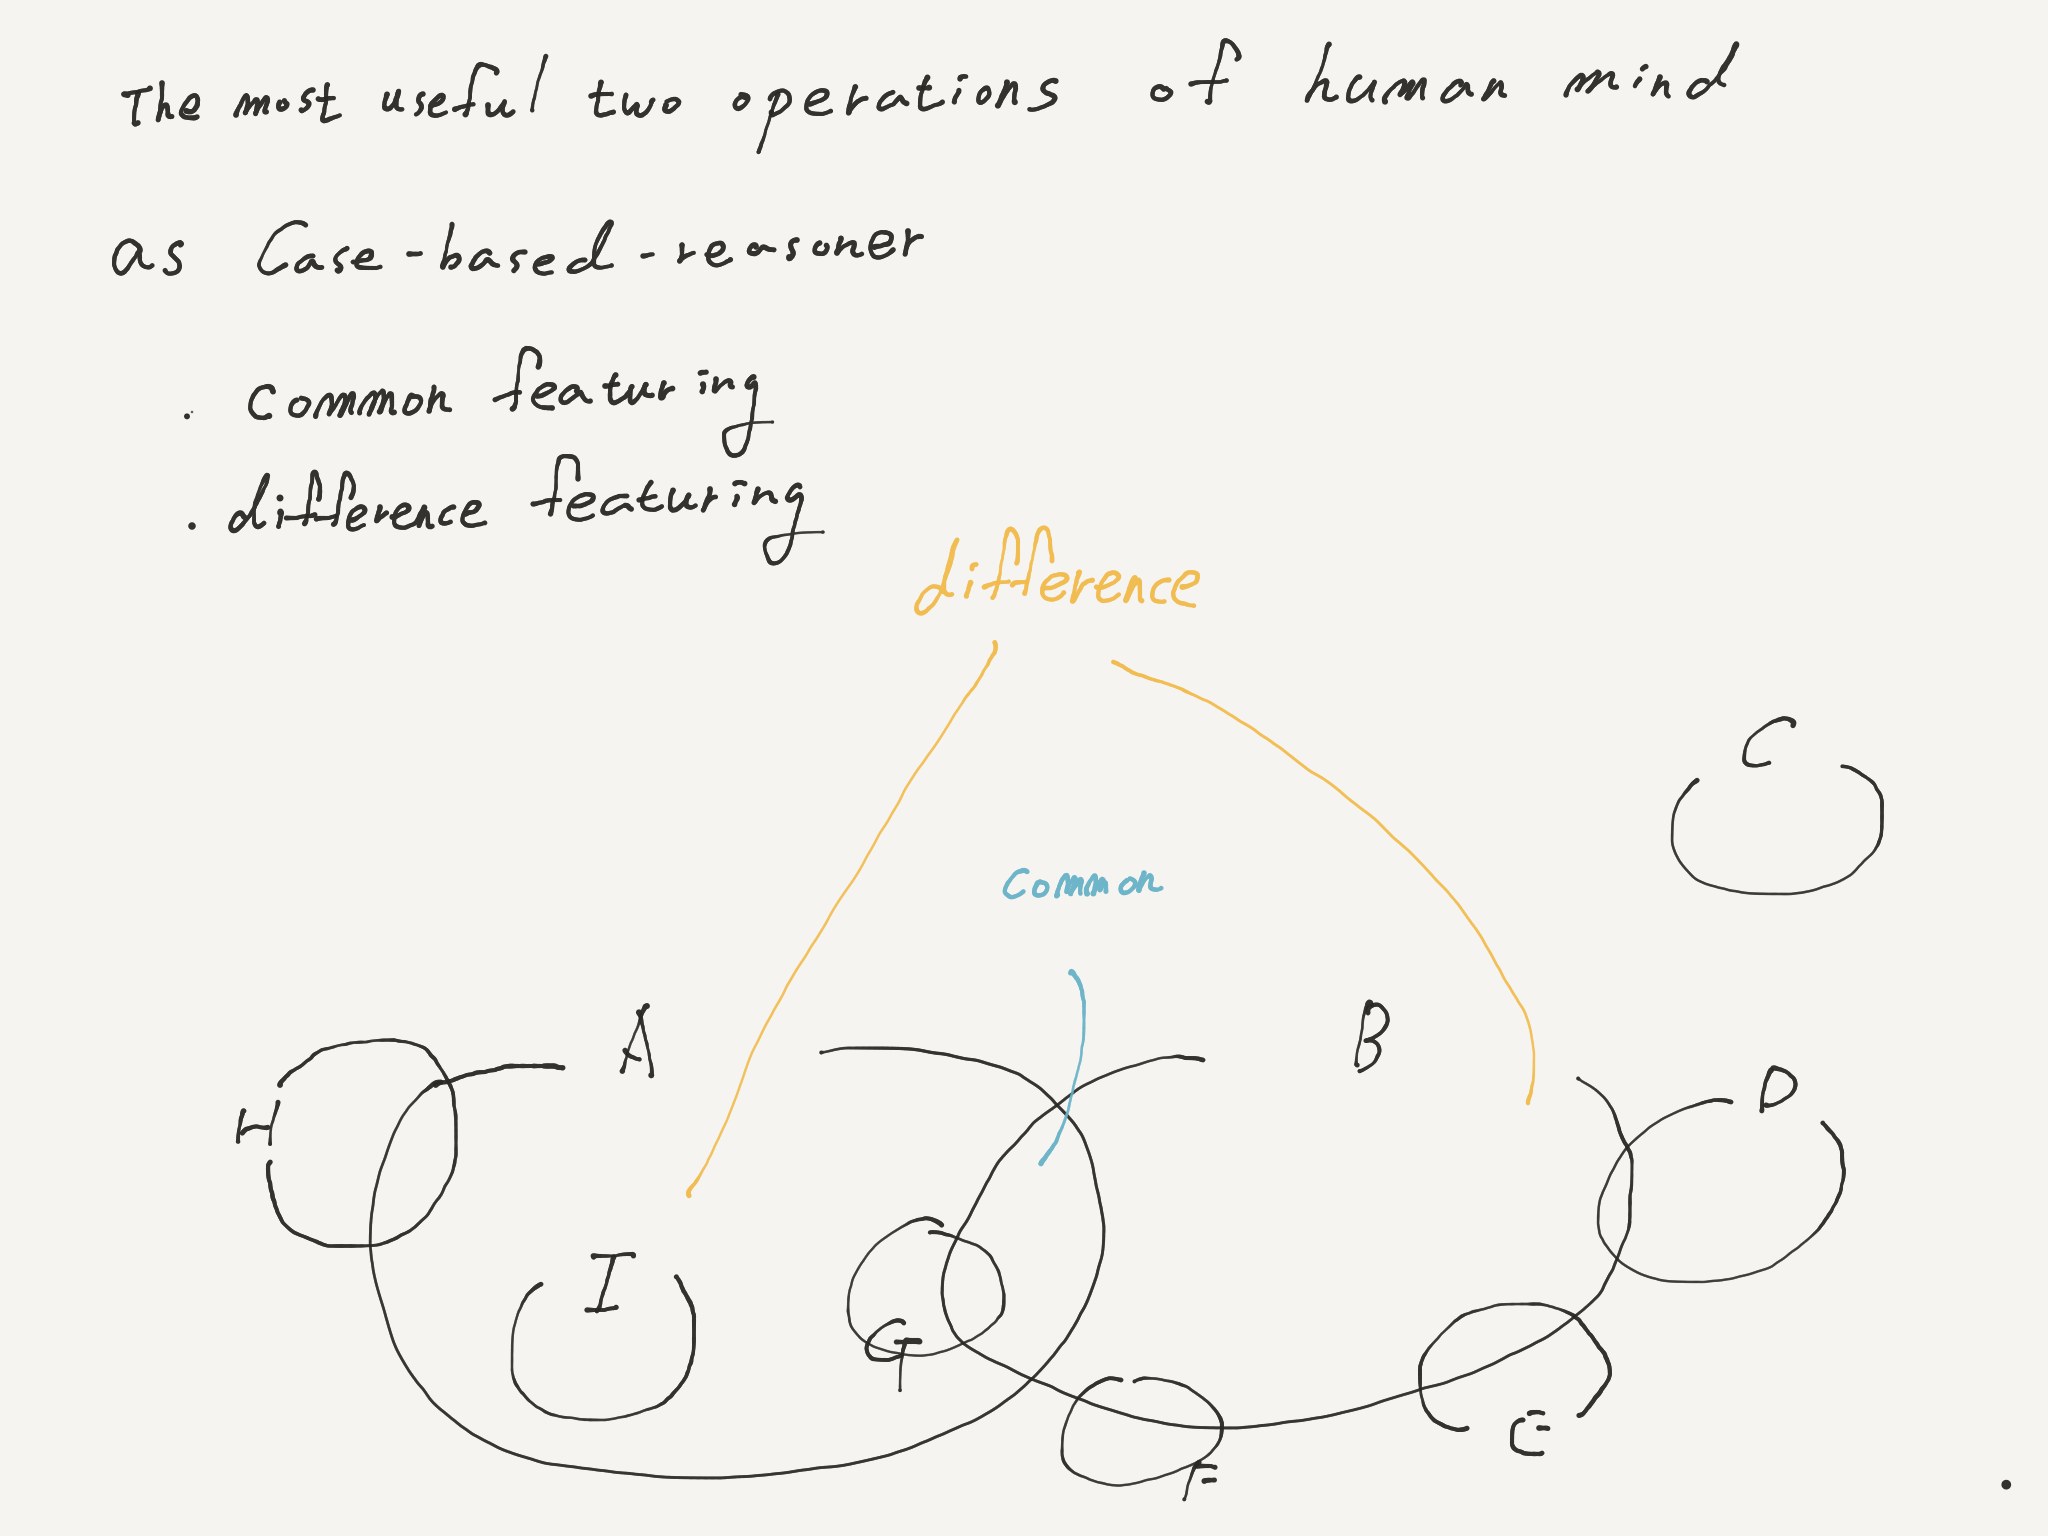 The most useful two operations of human mind
as Case-based-reasoner
. common featuring
. difference featuring
difference
C
common
A
B
D
H
I
G
E
F